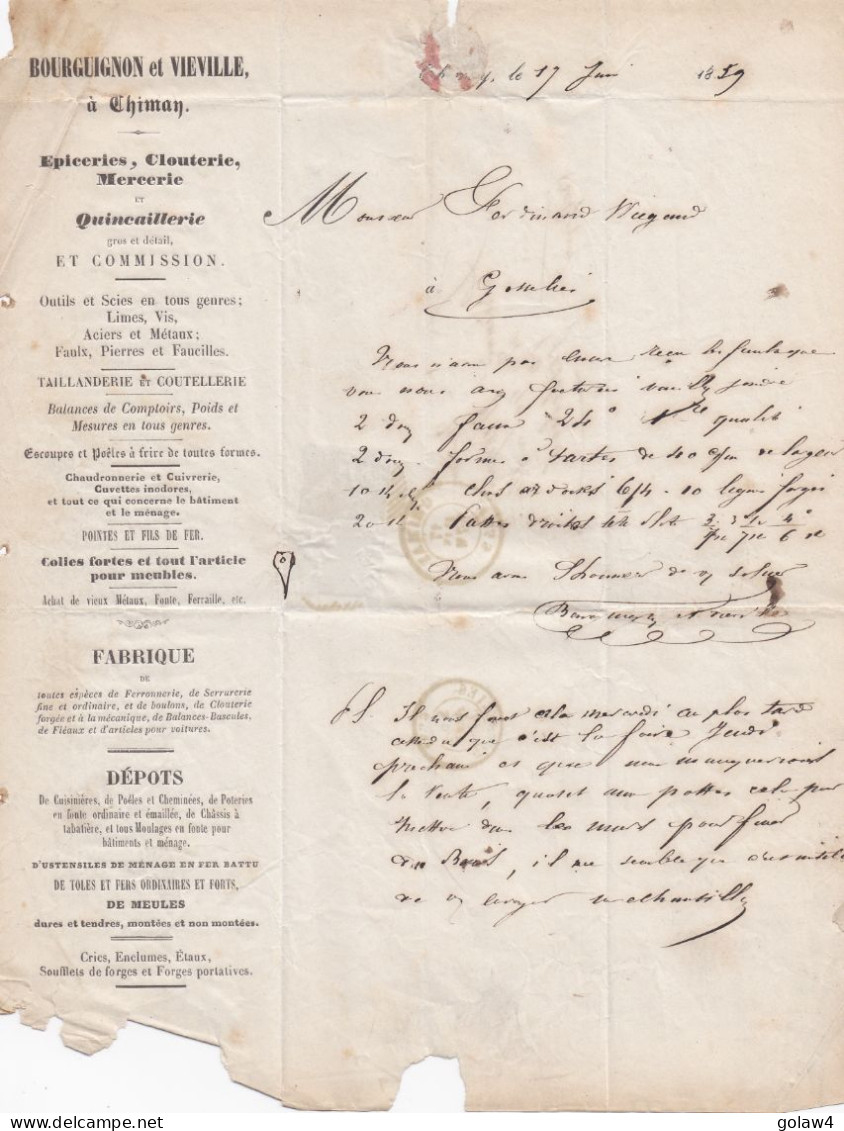 BOURGUIGNON et VIEVILLE,
à Chimay.
Epiceries, Clouterie,
Mercerie
ET
Quincaillerie
gros et détail,
ET COMMISSION.
Outils et Scies en tous genres;
Limes, Vis,
Aciers et Métaux;
Faulx, Pierres et Faucilles.
TAILLANDERIE ET COUTELLERIE
Balances de Comptoirs, Poids et
Mesures en tous genres.
Escoupes et Poêles à frire de toutes formes.
Chaudronnerie et Cuivrerie,
Cuvettes inodores,
et tout ce qui concerne le bâtiment
et le ménage.
POINTES ET FILS DE FER.
Colles fortes et tout l'article
pour meubles.
Achat de vieux Métaux, Fonte, Ferraille, etc.
FABRIQUE
DE
toutes espèces de Ferronnerie, de Serrurerie
fine et ordinaire, et de boulons, de Clouterie
forgée et à la mécanique, de Balances-Bascules,
de Fléaux et d'articles pour voitures.
DÉPOTS
De Cuisinières, de Poëles et Cheminées, de Poteries
en fonte ordinaire et émaillée, de Châssis à
tabatière, et tous Moulages en fonte pour
bâtiments et ménage.
D'USTENSILES DE MÉNAGE EN FER BATTU
DE TOLES ET FERS ORDINAIRES ET FORTS,
DE MEULES
dures et tendres, montées et non montées.
Crics, Enclumes, Étaux,
Soufflets de forges et Forges portatives.
Chimay, le 17 Juin 1859
Monsieur Ferdinand Wiegand
à Gosselies
Nous n'avons pas encore reçu
vous nous
2 douz faux 24 1re qualité
2 douz formes à tartes de 40 c/m de largeur
clous ardoises 6/4
pattes droites
Nous avons l'honneur de v saluer
Bourguignon et Vieville
PS. Il nous faut cela mercredi au plus tard
attendu que c'est la foire Jeudi
prochain et que nous manquerions
la vente, quant aux pattes cela pour
mettre dans les murs pour fixer
du Bois, il me semble que
de v envoyer un échantillon
golaw4